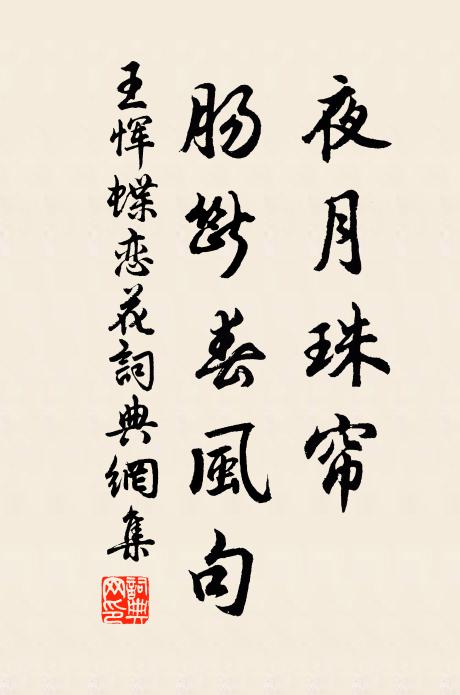 夜月珠帘
肠断春風句
王恽蝶恋花詞典網集
詞典网印